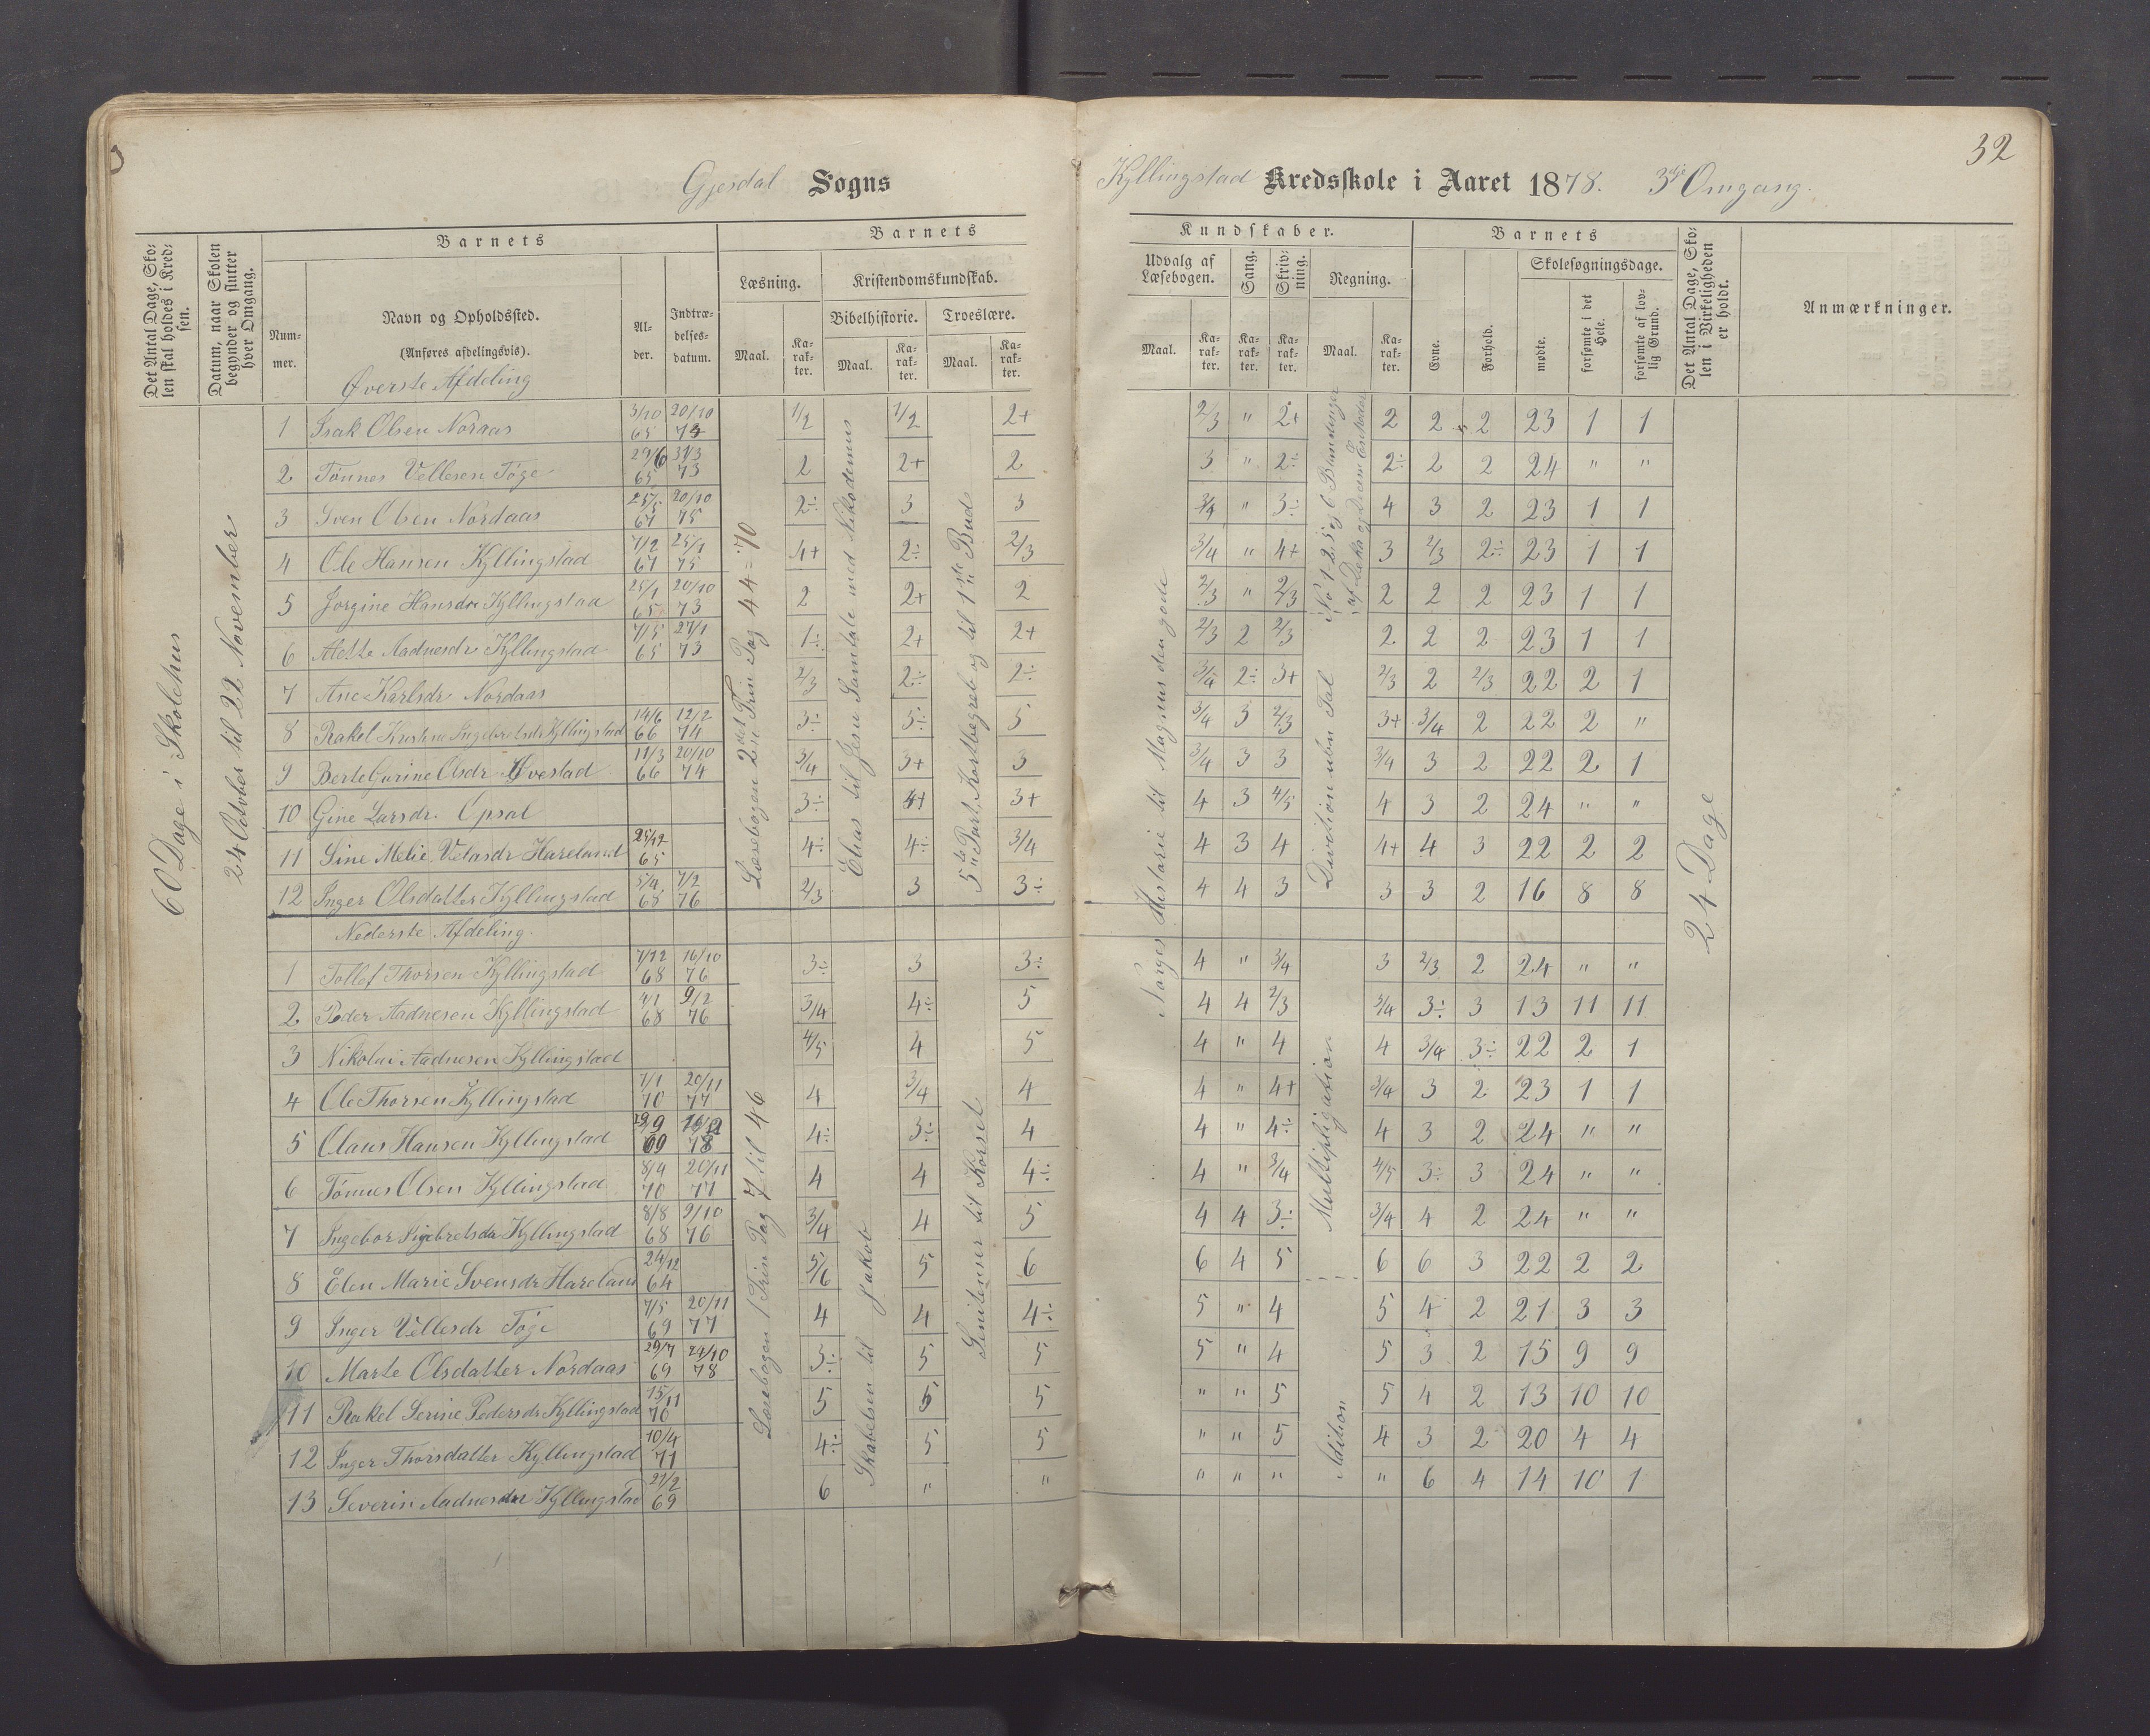 32
Gjesdal Sogns
Kyllingstad Kredsskole i Aaret 1878. 3die Omgang.
Det Antal Dage, Skolen skal holdes i Kredsen.
Datum, naar Skolen begynder og slutter hver Omgang.
Barnets
Nummer.
Navn og Opholdssted.
(Anføres afdelingsvis).
Alder.
Indtrædelsesdatum.
Barnets
Læsning.
Maal.
Karakter.
Kristendomskundskab.
Bibelhistorie.
Maal.
Karakter.
Troeslære.
Maal.
Karakter.
Kundskaber.
Udvalg af Læsebogen.
Maal.
Karakter.
Sang.
Karakter.
Skrivning.
Karakter.
Regning.
Maal.
Karakter.
Barnets
Evne.
Forhold.
Skolesøgningsdage.
mødte.
forsømte i det Hele.
forsømte af lovlig Grund.
Det Antal Dage, Skolen i Virkeligheden er holdt.
Anmærkninger.
60 Dage i Skolehus
24 October til 22 November
Øverste Afdeling
1 Isak Olsen Nordaas 3/10 65 20/10 74 1/2 1/2 2+ 2/3 " 2+ 2 2 2 23 1 1
2 Tønnes Vellesen Tøge 29/6 65 31/3 73 2 2+ 2 3 " 2÷ 2÷ 2 2 24 " "
3 Sven Olsen Nordaas 25/5 67 20/10 75 2÷ 3 3 3/4 " 3÷ 4 3 2 23 1 1
4 Ole Hansen Kyllingstad 7/2 67 25/1 75 4+ 2÷ 2/3 3/4 " 4+ 3 2/3 2÷ 23 1 1
5 Jorgine Hansdr Kyllingstad 25/1 65 20/10 73 2 2+ 2 2/3 " 2/3 2 2 2 23 1 1
6 Alette Aadnesdr Kyllingstad 7/5 65 27/1 73 1÷ 2+ 2+ 2/3 2 2/3 2 2 2 23 1 1
7 Ane Karlsdr Nordaas 2/3 2÷ 2÷ 3/4 2÷ 3+ 2/3 2 2/3 22 2 1
8 Rakel Kristine Ingebretsdr Kyllingstad 14/6 66 12/2 74 3÷ 3÷ 5 3/4 3 2/3 3+ 3/4 2 22 2 "
9 Berte Gurine Olsdr Øvestad 11/3 66 20/10 74 3/4 3+ 3 3/4 3 3 3/4 3 2 22 2 1
10 Gine Larsdr. Opsal 3÷ 4+ 3+ 4 3 4/5 4 3 2 24 " "
11 Sine Melie Velasdr Hareland 25/12 65 4÷ 4÷ 3/4 4 3 4 4+ 4 3 22 2 2
12 Inger Olsdatter Kyllingstad 5/4 68 7/2 76 2/3 3 3÷ 4 4 3 3 3 2 16 8 8
Læsebogen 2det Trin Pag 44 = 70
Elias til Jesu Samtale med Nikodemus
5te Part, Kortbegreb og til 1ste Bud
Norges Historie til Magnus den gode
No 1-2, 5 og 6 Blandinger af Deka og Decim Enheder
Divetion uben Tal
24 Dage
Nederste Afdeling.
1 Tollef Thorsen Kyllingstad 7/12 68 16/10 76 3÷ 3 3÷ 4 " 3/4 3 2/3 2 24 " "
2 Peder Aadnesen Kyllingstad 4/1 68 9/2 76 3/4 4÷ 5 4 4 2/3 3/4 3÷ 3 13 11 11
3 Nikolai Aadnesen Kyllingstad 4/5 4 5 4 " 4 4 3/4 3÷ 22 2 1
4 Ole Thorsen Kyllingstad 7/1 70 20/11 77 4 3/4 4 4 " 4+ 3/4 3 2 23 1 1
5 Olaus Hansen Kyllingstad 29/9 69 78 4÷ 3÷ 4 4 " 4÷ 4 3 2 24 " "
6 Tønnes Olsen Kyllingstad 8/4 70 20/11 77 4 4 4÷ 4 " 3/4 4/5 3÷ 3 24 " "
7 Ingebor Sigebretsdr Kyllingstad 8/8 68 9/10 76 3/4 4 5 4 4 3÷ 3/4 4 2 24 " "
8 Elen Marie Svensdr Hareland 24/12 64 5/6 5 6 6 4 5 6 6 3 22 2 2
9 Inger Vellesdr Tøge 7/5 69 20/11 77 4 4 4÷ 5 " 4 5 4 2 21 3 3
10 Marte Olsdatter Nordaas 29/7 69 24/10 78 3÷ 5 5 5 " 4 5 3 2 15 9 9
11 Rakel Serine Pedersdr Kyllingstad 15/11 70 5 5 5 " " 5 5 4 2 13 10 10
12 Inger Thorsdatter Kyllingstad 10/4 71 4÷ 5 5 " " 5 4 3 2 20 4 4
13 Severin Aadnesdr Kyllingstad 27/2 69 6 " " " " " " 6 4 14 10 1
Læsebogen 1 Trin Pag 7 til 46
Skabelsen til Jakob
Senitenser til Korset
Multipligation
Adition